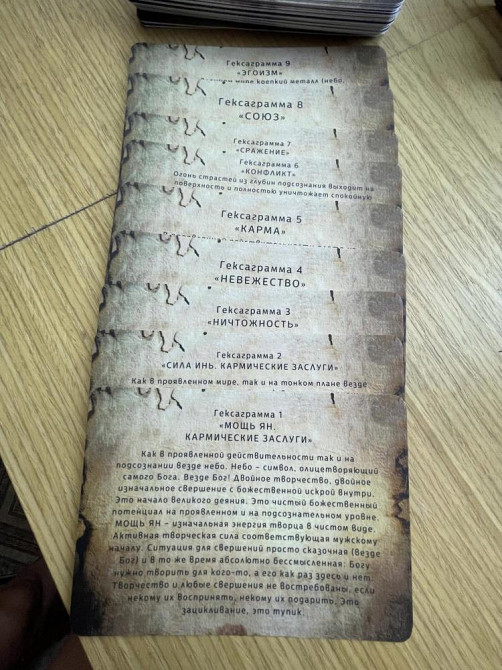 Гексаграмма 9
«ЭГОИЗМ»
крепкий металл (небо,
Гексаграмма 8
«СОЮЗ»
Гексаграмма 7
«СРАЖЕНИЕ»
Гексаграмма 6
«КОНФЛИКТ»
Огонь страстей из глубин подсознания выходит на
поверхность и полностью уничтожает спокойную
Гексаграмма 5
«КАРМА»
Гексаграмма 4
«НЕВЕЖЕСТВО»
Гексаграмма 3
«НИЧТОЖНОСТЬ»
Гексаграмма 2
«СИЛА ИНЬ. КАРМИЧЕСКИЕ ЗАСЛУГИ»
Как в проявленном мире, так и на тонком плане везде
Гексаграмма 1
«МОЩЬ ЯН.
КАРМИЧЕСКИЕ ЗАСЛУГИ»
Как в проявленной действительности так и на
подсознании везде небо. Небо - символ, олицетворяющий
самого Бога. Везде Бог! Двойное творчество, двойное
изначальное свершение с божественной искрой внутри.
Это начало великого деяния. Это чистый божественный
потенциал на проявленном и на подсознательном уровне.
МОЩЬ ЯН - изначальная энергия творца в чистом виде.
Активная творческая сила соответствующая мужскому
началу. Ситуация для свершений просто сказочная (везде
Бог) и в то же время абсолютно бессмысленная: Богу
нужно творить для кого-то, а его как раз здесь и нет.
Творчество и любые свершения не востребованы, если
некому их воспринять, некому их подарить. Это
зацикливание, это тупик.